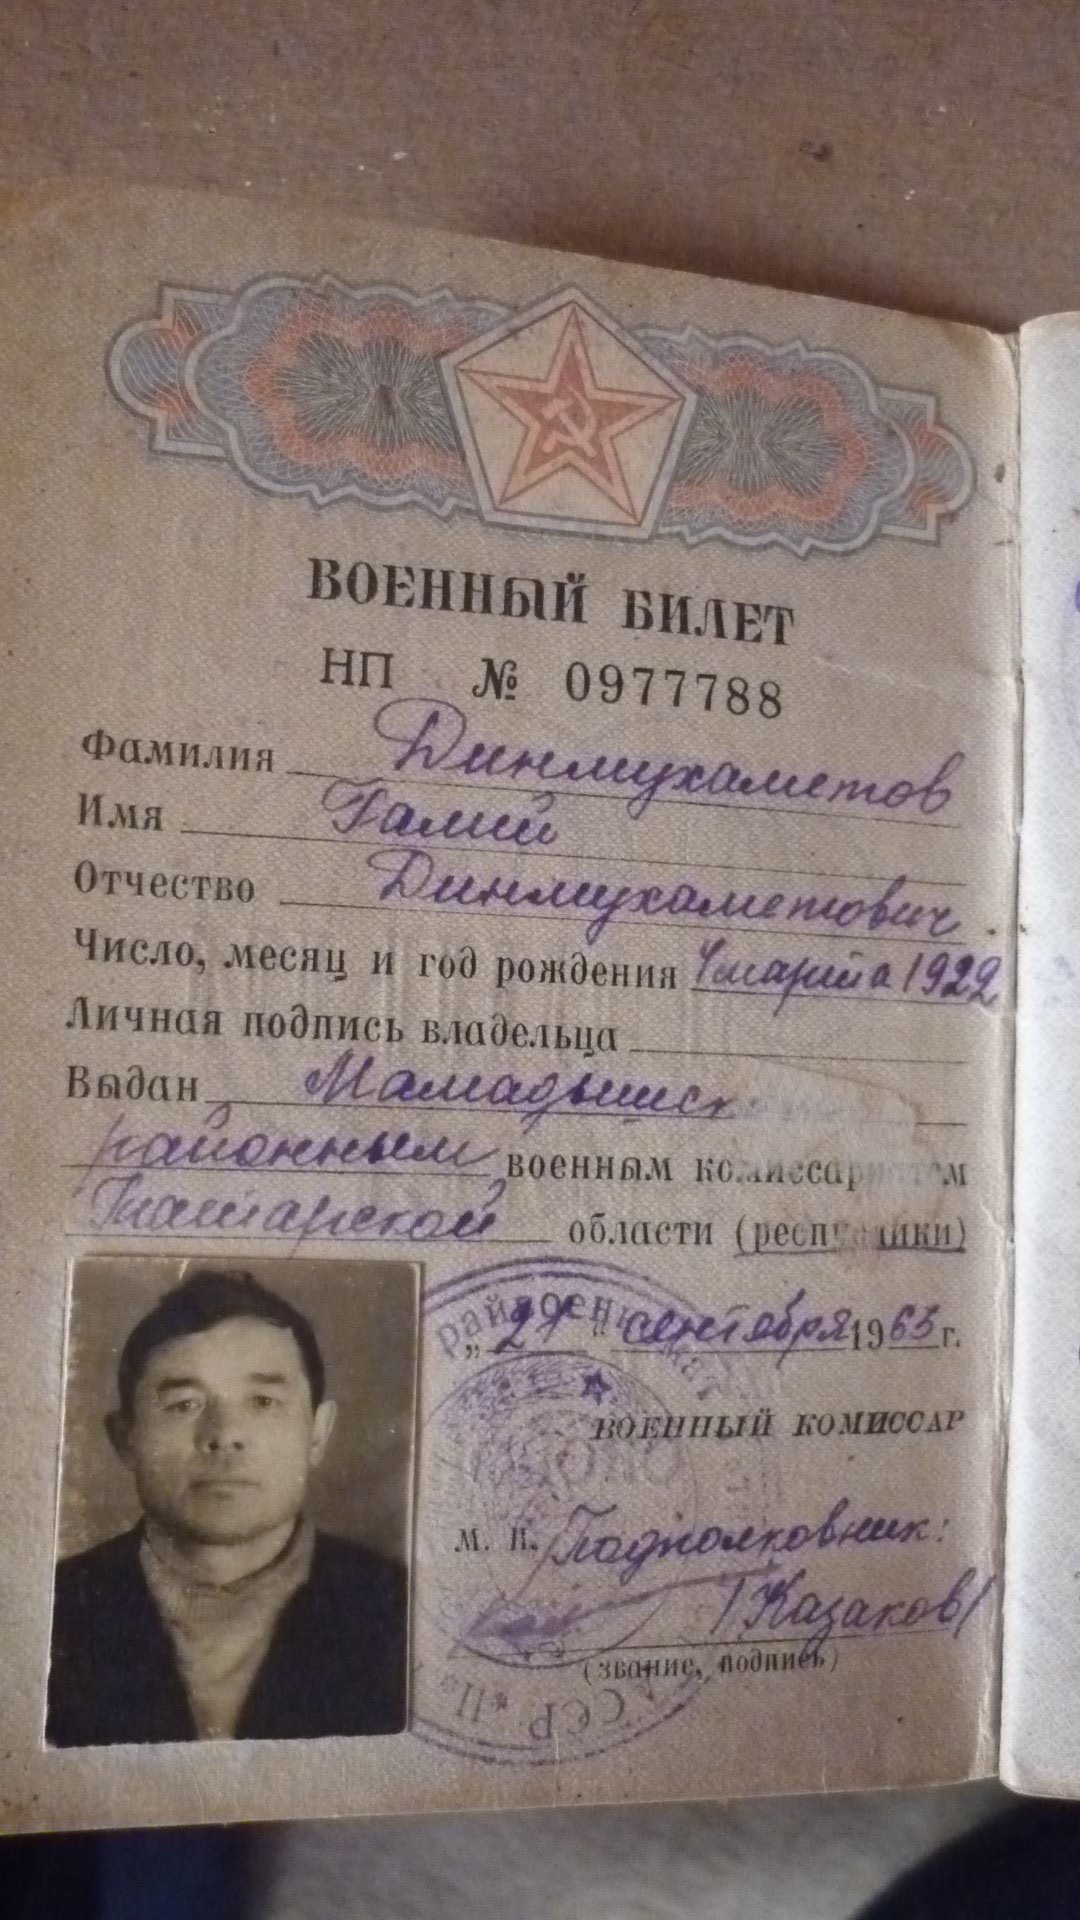 ВОЕННЫЙ БИЛЕТ
НП № 0977788
Фамилия Динмухаметов
Имя Галий
Отчество Динмухаметович
Число, месяц и год рождения 4 марта 1922
Личная подпись владельца
Выдан Мамадышск
районным военным комиссариатом
Татарской области (республики)
„ " сентября 1963 г.
ВОЕННЫЙ КОМИССАР
М. П. Подполковник:
/Казаков/
(звание, подпись)